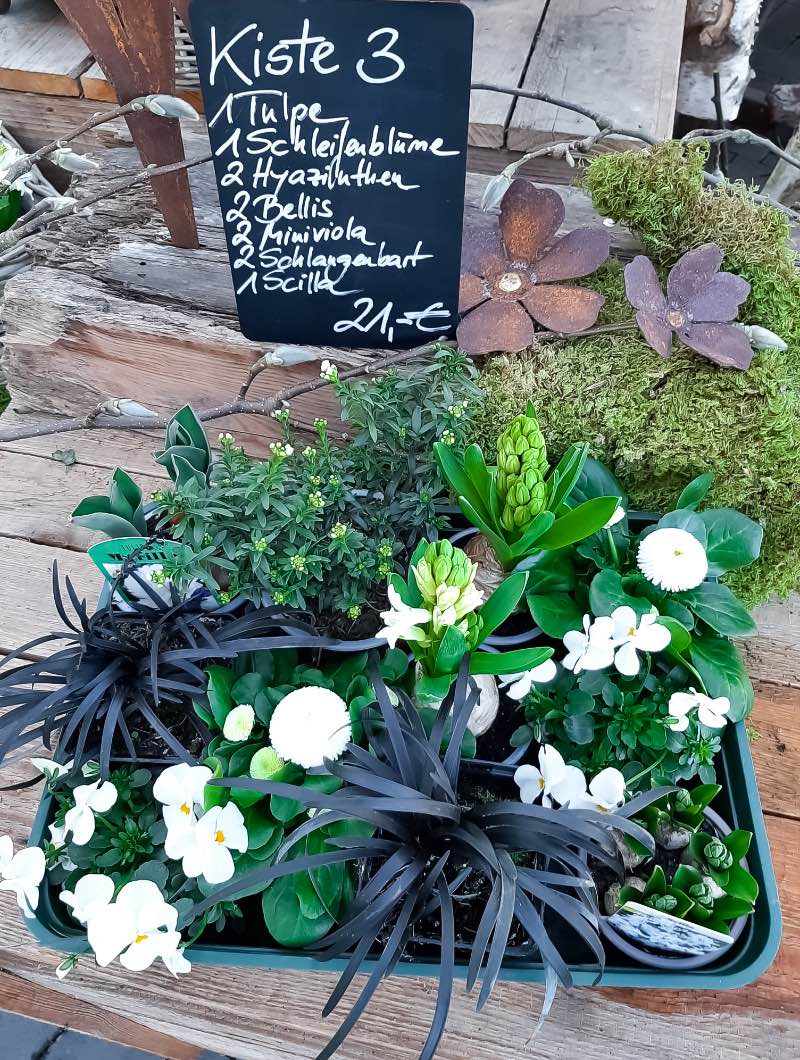 Kiste 3
1 Tulpe
1 Schleifenblume
2 Hyazinthen
2 Bellis
2 Miniviola
2 Schlangenbart
1 Scilla
21,-€